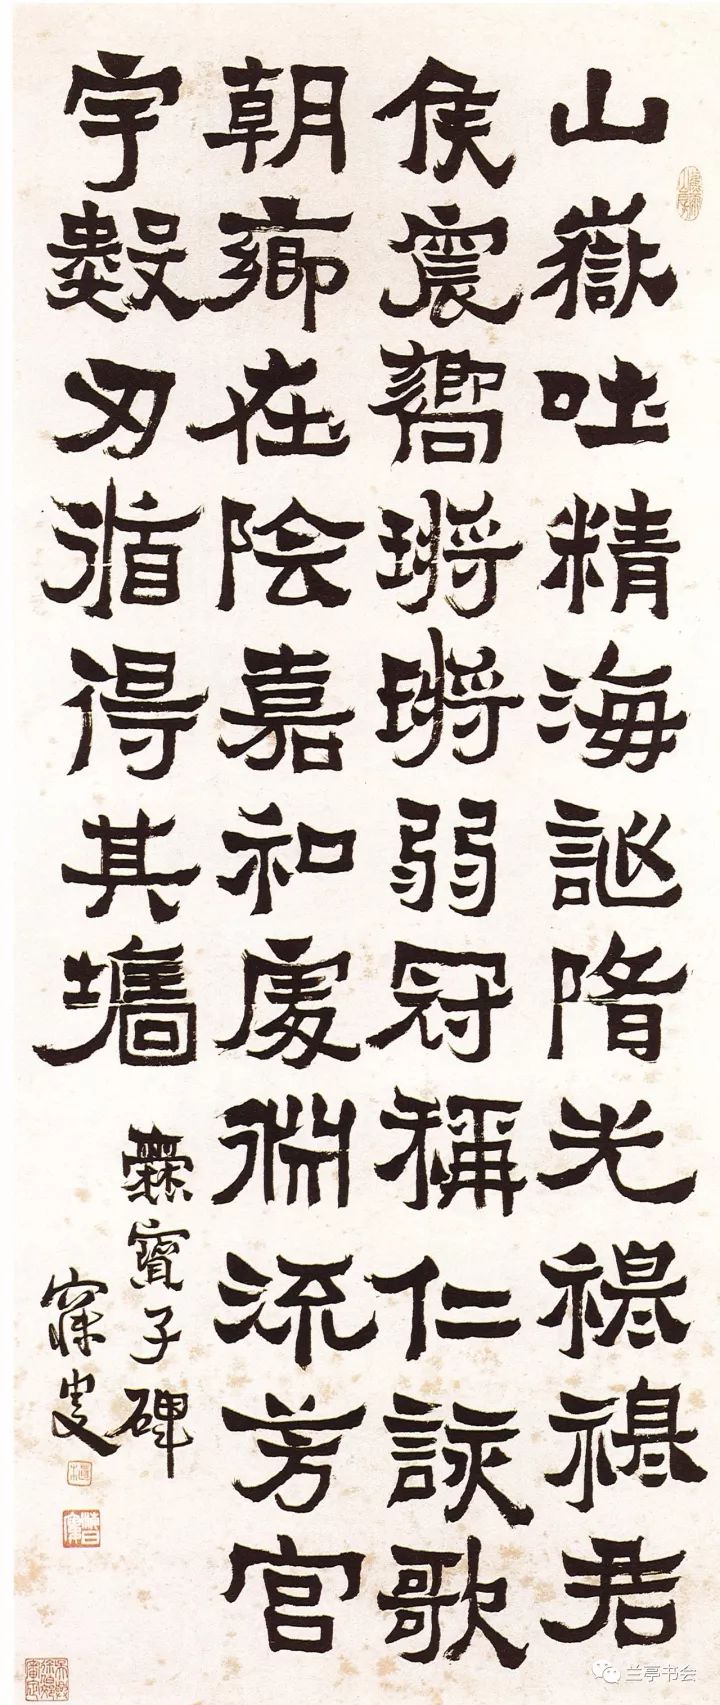 山嶽吐精海誕隋光穆穆君
侯震嚮鏘鏘弱冠稱仁詠歌
朝鄉在陰嘉和處淵流芳宫
宇數刃循得其墻
爨寶子碑
寐叟
兰亭书会